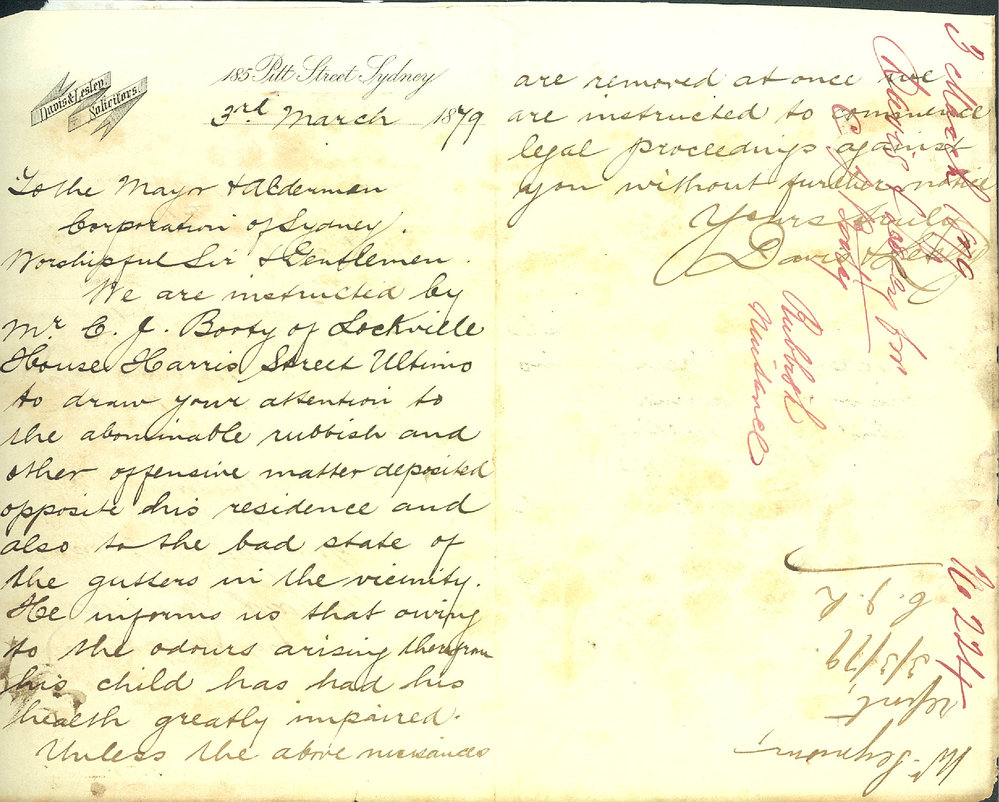 Davis & Lesley,
Solicitors.
185 Pitt Street Sydney
3rd March 1879
To the Mayor & Aldermen
Corporation of Sydney.
Worshipful Sir & Gentlemen.
We are instructed by
Mr C. J. Booty of Lockville
House Harris Street Ultimo
to draw your attention to
the abominable rubbish and
other offensive matter deposited
opposite his residence and
also to the bad state of
the gutters in the vicinity.
He informs us that owing
to the odours arising therefrom
his child has had his
health greatly impaired.
Unless the above nuisances
are removed at once we
are instructed to commence
legal proceedings against
you without further notice
Yours truly
Davis & Lesley
3 March 1879
Davis & Lesley for
C. J. Booty
Rubbish
Nuisance
No 224
Mr Seymour
report
3/3/79.